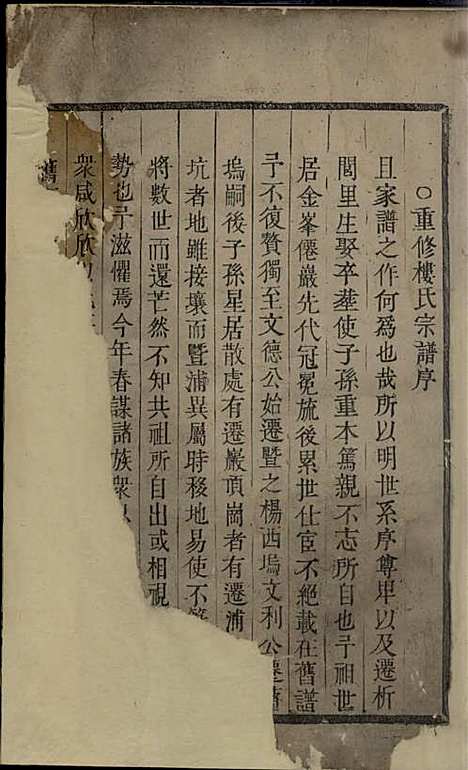 ○重修樓氏宗譜序
且家譜之作何爲也哉所以明世系序尊卑以及遷析
閭里生娶卒塟使子孫重本篤親不忘所自也予祖世
居金峯僊巖先代冠冕旒後累世仕宦不絶載在舊譜
予不復贅獨至文德公始遷暨之楊西塢文利公遷
塢嗣後子孫星居散處有遷巖頂崗者有遷浦
坑者地雖接壤而暨浦異屬時移地易使不
將數世而還茫然不知共祖所自出或相視
勢也予滋懼焉今年春謀諸族衆
衆咸欣欣
舊